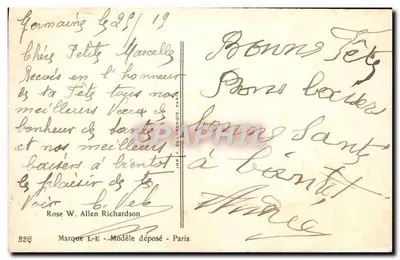 Germaine le 25/ 19
Chère Petite Marcelle
Recois en l'honneur
de ta Fête tous nos
meilleurs Vœux de
bonheur de santé
et nos meilleurs
baisers à bientot
le plaisir de te
Voir
Rose W. Allen Richardson
326
Marque L-E - Modèle déposé - Paris
Bonne Fête
Bons baisers
bonne Santé
à bientôt